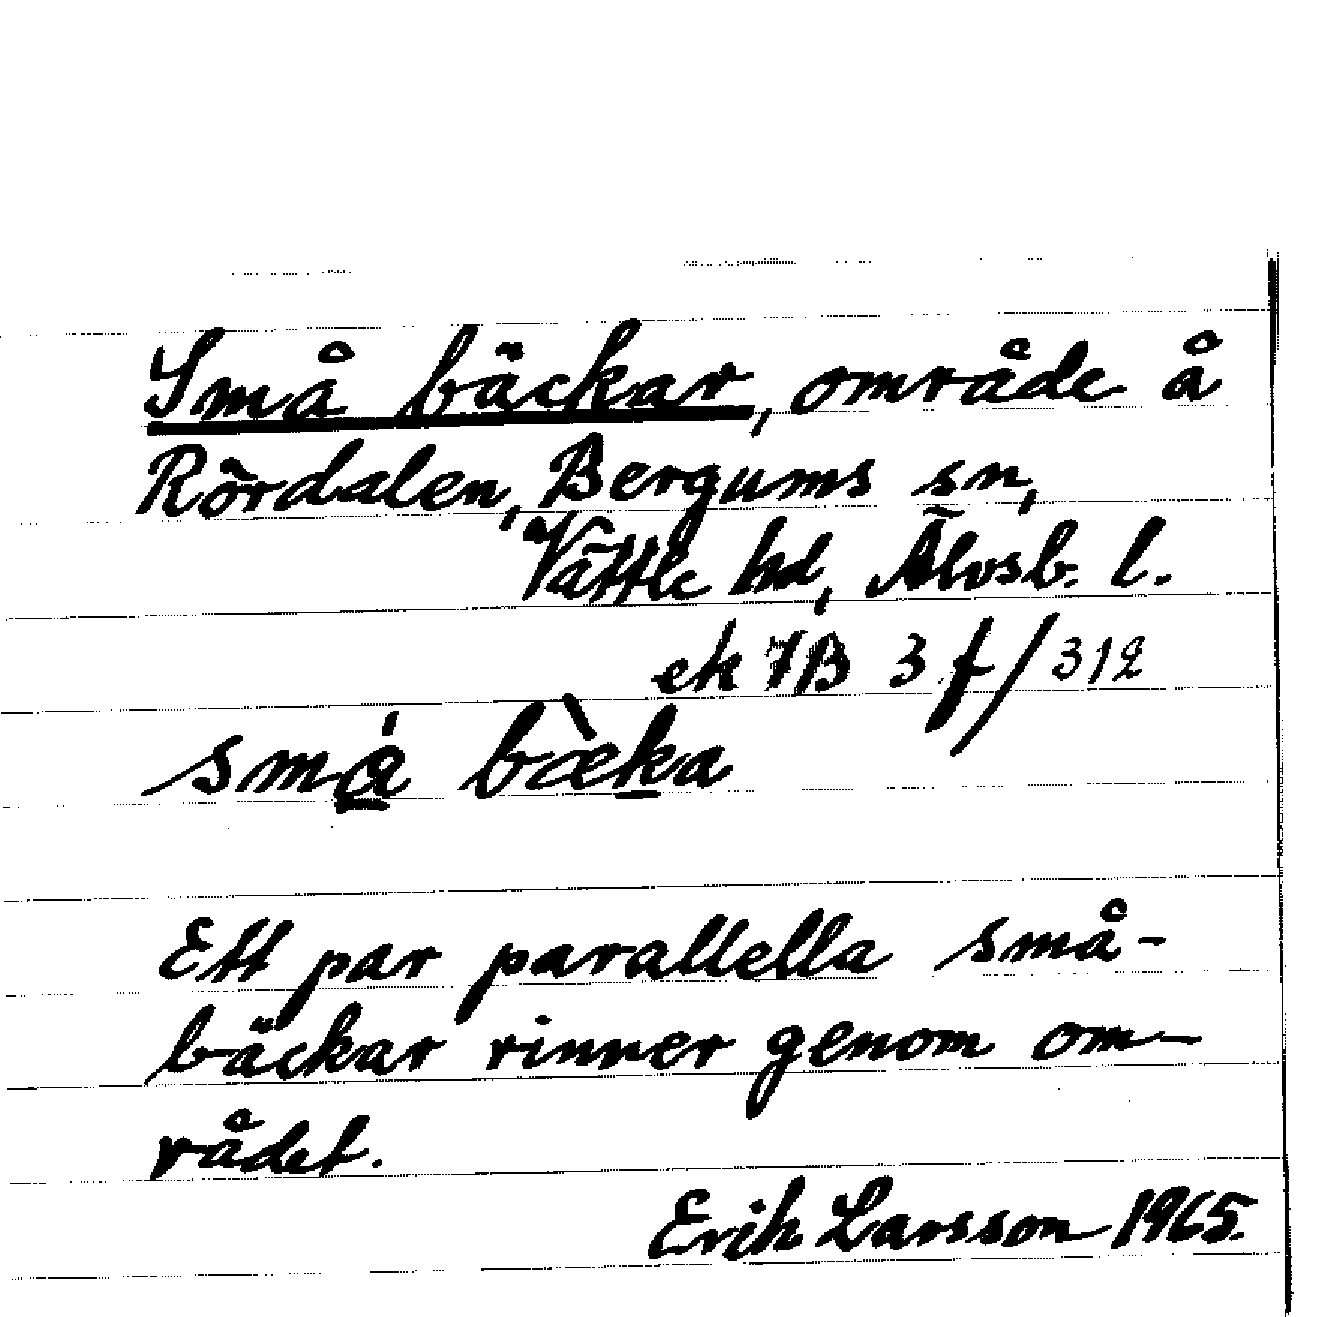 Små bäckar, område å
Rördalen, Bergums sn,
Vättle hd, Älvsb. l.
ek 7B 3 f/312
små̀ bæ̀ka
Ett par parallella små-
bäckar rinner genom om-
rådet.
Erik Larsson 1965.